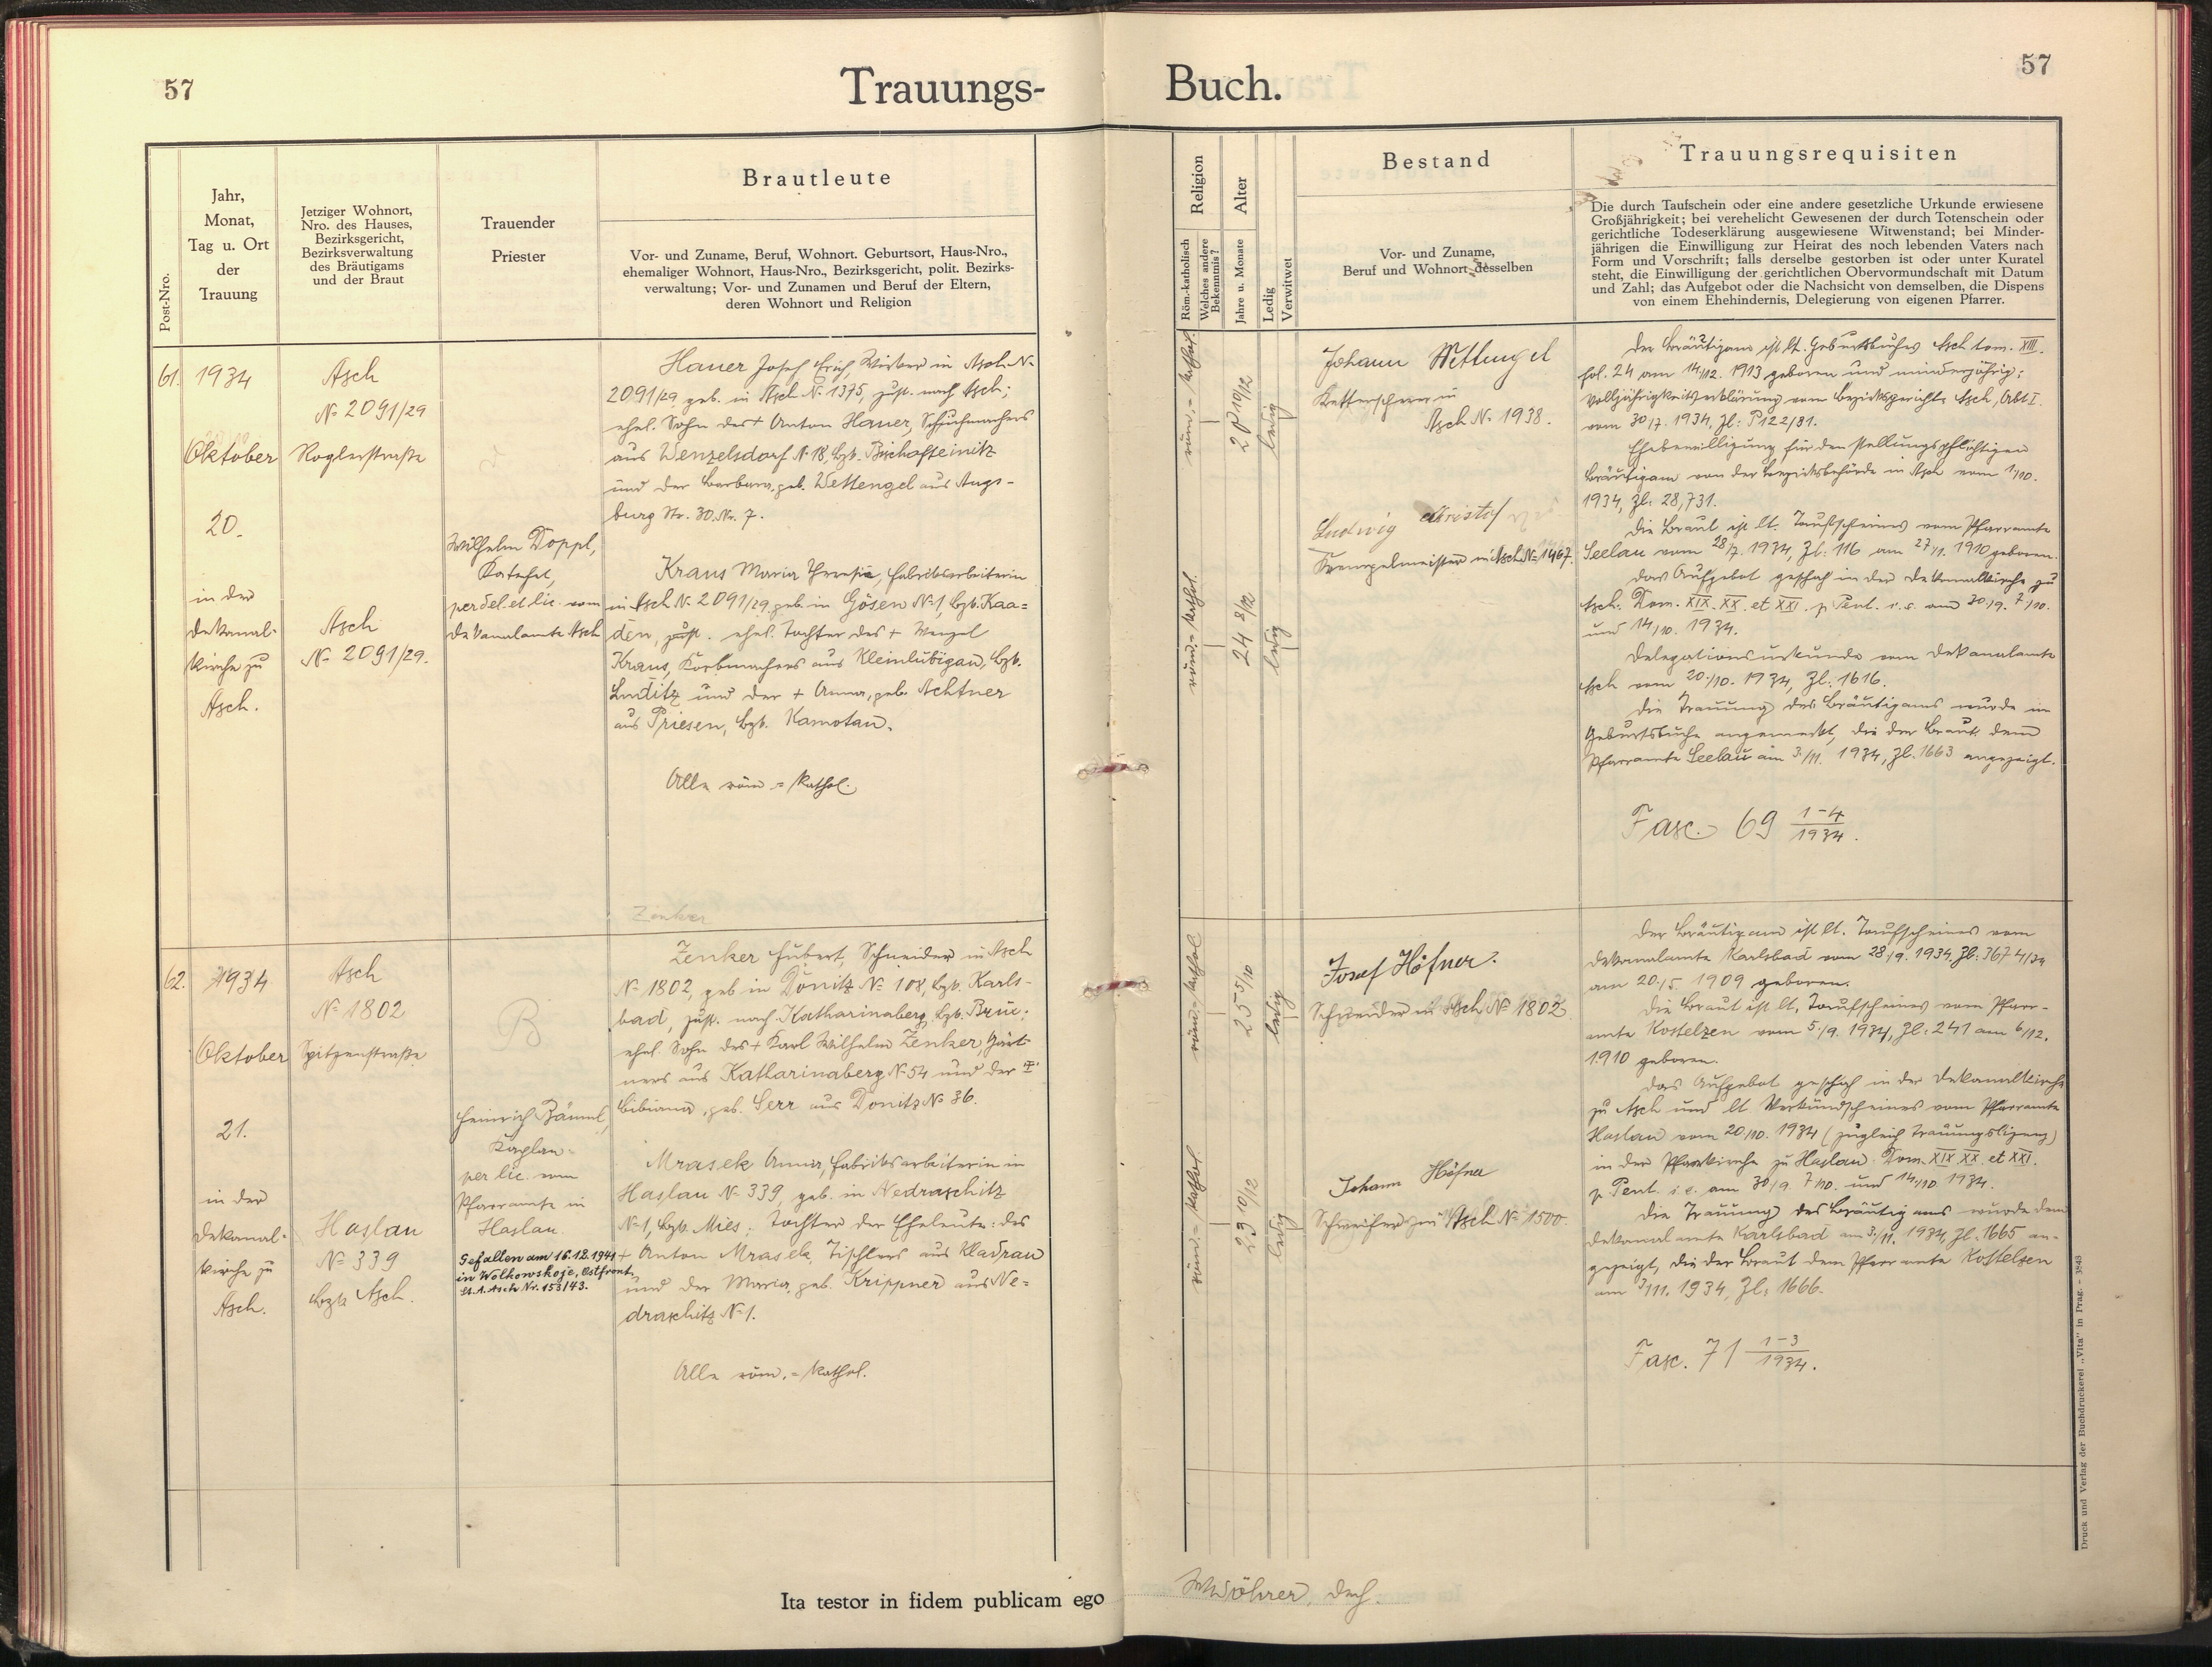 57
Trauungs-
Post-Nro.
Jahr,
Monat,
Tag u. Ort
der
Trauung
Jetziger Wohnort,
Nro. des Hauses,
Bezirksgericht,
Bezirksverwaltung
des Bräutigams
und der Braut
Trauender
Priester
Brautleute
Vor- und Zuname, Beruf, Wohnort. Geburtsort, Haus-Nro.,
ehemaliger Wohnort, Haus-Nro., Bezirksgericht, polit. Bezirks-
verwaltung; Vor- und Zunamen und Beruf der Eltern,
deren Wohnort und Religion
61.
1934
Oktober
20.
in der
Dekanal-
kirche zu
Asch.
Asch
№ 2091/29
Roglerstraße
Asch
№ 2091/29.
Wilhelm Doppl,
Katechet,
per del. et lic. vom
Dekanalamte Asch
Hauer Josef Erich, Wirker in Asch №
2091/29 geb. in Asch № 1375, zust. nach Asch;
ehel. Sohn des + Anton Hauer, Schuhmachers
aus Wenzelsdorf № 18, Bzk. Bischofteinitz
und der Barbara, geb. Wettengel aus Augs-
burg Str. 30. Nr. 7.
Kraus Maria Theresia, Fabriksarbeiterin
in Asch № 2091/29 geb. in Gösen № 1, Bzk. Kaa=
den, zust. ehel. Tochter des + Wenzel
Kraus, Korbmachers aus Kleinlubigau, Bzk.
Luditz und der + Anna, geb. Achtner
aus Priesen, Bzk. Komotau.
Alle röm.=kathol.
Zenker
62.
1934
Oktober
21.
in der
Dekanal-
kirche zu
Asch.
Asch
№ 1802
Spitzenstraße
Haslau
№ 339
Bzk. Asch.
B
Heinrich Bäuml,
Kaplan
per lic. vom
Pfarramte in
Haslau.
Gefallen am 16.12.1941
in Wolkowskoje, Ostfront.
St. A. Asch Nr. 153/43.
Zenker Hubert, Schneider in Asch
№ 1802, geb. in Donitz № 108, Bzk. Karls-
bad, zust. nach Katharinaberg, Bzk. Brüx;
ehel. Sohn des + Karl Wilhelm Zenker, Gärt-
ners aus Katharinaberg № 54 und der +
Bibiana, geb. Serr aus Donitz № 36.
Mrasek Anna, Fabriksarbeiterin in
Haslau № 339, geb. in Nedraschitz
№ 1, Bzk. Mies; Tochter der Eheleute: des
+ Anton Mrasek, Tischlers aus Kladrau
und der Maria, geb. Krippner aus Ne-
draschitz № 1.
Alle röm.=kathol.
Ita testor in fidem publicam ego
57
Buch.
Religion
Röm.-katholisch
Welches andere
Bekenntnis?
Alter
Jahre u. Monate
Ledig
Verwitwet
Bestand
Vor- und Zuname,
Beruf und Wohnort desselben
Trauungsrequisiten
Die durch Taufschein oder eine andere gesetzliche Urkunde erwiesene
Großjährigkeit; bei verehelicht Gewesenen der durch Totenschein oder
gerichtliche Todeserklärung ausgewiesene Witwenstand; bei Minder-
jährigen die Einwilligung zur Heirat des noch lebenden Vaters nach
Form und Vorschrift; falls derselbe gestorben ist oder unter Kuratel
steht, die Einwilligung der gerichtlichen Obervormundschaft mit Datum
und Zahl; das Aufgebot oder die Nachsicht von demselben, die Dispens
von einem Ehehindernis, Delegierung von eigenen Pfarrer.
röm.=kathol.
20 10/12
ledig
röm.=kathol.
24 8/12
ledig
Johann Wettengel
Kettenscherer in
Asch № 1938.
Ludwig Christof
Krempelmeister in Asch № 1467.
Der Bräutigam ist lt. Geburtsbuches Asch tom. XIII.
fol. 24 am 14/12. 1913 geboren und minderjährig;
Volljährigkeitserklärung vom Bezirksgerichte Asch, Abt. I.
vom 30/7. 1934, Zl: P 122/31.
Ehebewilligung für den stellungspflichtigen
Bräutigam von der Bezirksbehörde in Asch vom 1/10.
1934, Zl: 28,731.
Die Braut ist lt. Taufscheines vom Pfarramte
Seelau vom 28/7. 1934, Zl: 116 am 27/1. 1910 geboren.
Das Aufgebot geschah in der Dekanalkirche zu
Asch. Dom. XIX. XX. et XXI. p. Pent. i. e. am 30/9. 7/10.
und 14/10. 1934.
Delegationsurkunde vom Dekanalamte
Asch vom 20./10. 1934, Zl: 1616.
Die Trauung des Bräutigams wurde im
Geburtsbuche angemerkt, die der Braut dem
Pfarramte Seelau am 3./11. 1934, Zl. 1663 angezeigt.
Fasc. 69 1-4/1934.
röm.=kathol
25 5/10
ledig
röm.=kathol.
23 10/12
ledig
Josef Höfner.
Schneider in Asch № 1802
Johann Höfner
Schweifer in Asch № 1500.
Der Bräutigam ist lt. Taufscheines vom
Dekanalamte Karlsbad vom 28/9. 1934, Zl: 3674/34
am 20/5. 1909 geboren.
Die Braut ist lt. Taufscheines vom Pfarr-
amte Kostelzen vom 5/9. 1934, Zl: 241 am 6/12.
1910 geboren.
Das Aufgebot geschah in der Dekanalkirche
zu Asch und lt. Verkündscheines vom Pfarramte
Haslau vom 20/10. 1934 (zugleich Trauungslizenz)
in der Pfarrkirche zu Haslau. Dom. XIX XX. et XXI.
p. Pent. i. e. am 30/9. 7/10. und 14/10 1934.
Die Trauung des Bräutigams wurde dem
Dekanalamte Karlsbad am 3/11. 1934, Zl. 1665 an-
gezeigt, die der Braut dem Pfarramte Kostelzen
am 3/11. 1934, Zl: 1666.
Fasc. 71 1-3/1934.
Wöhrer, Dech.
Druck und Verlag der Buchdruckerei „Vita" in Prag. — 3848